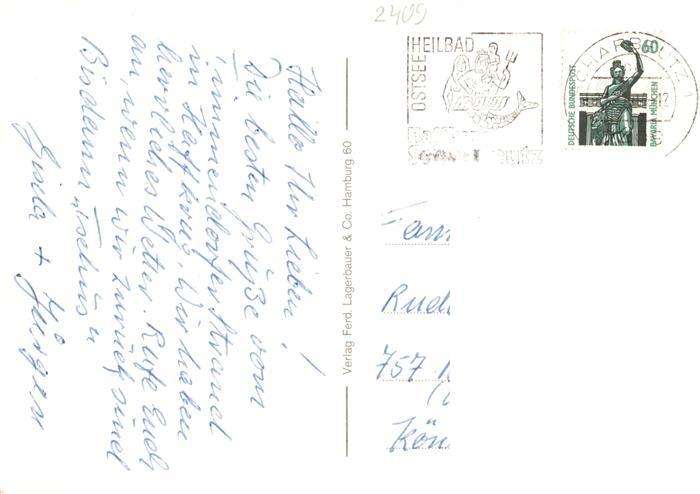 Hallo Ihr Lieben!
Die besten Grüße vom
Timmendorfer Strand
in Haffkrug. Wir haben
herrliches Wetter. Rufe Euch
an, wenn wir zurück sind
Bisdann "Tschüs"
Gisela + Jürgen
Verlag Ferd. Lagerbauer & Co. Hamburg 60
2409
OSTSEE
HEILBAD
SCHARBEUTZ 1
60
DEUTSCHE BUNDESPOST
BAVARIA MÜNCHEN
Fam
Rud
757
Kön